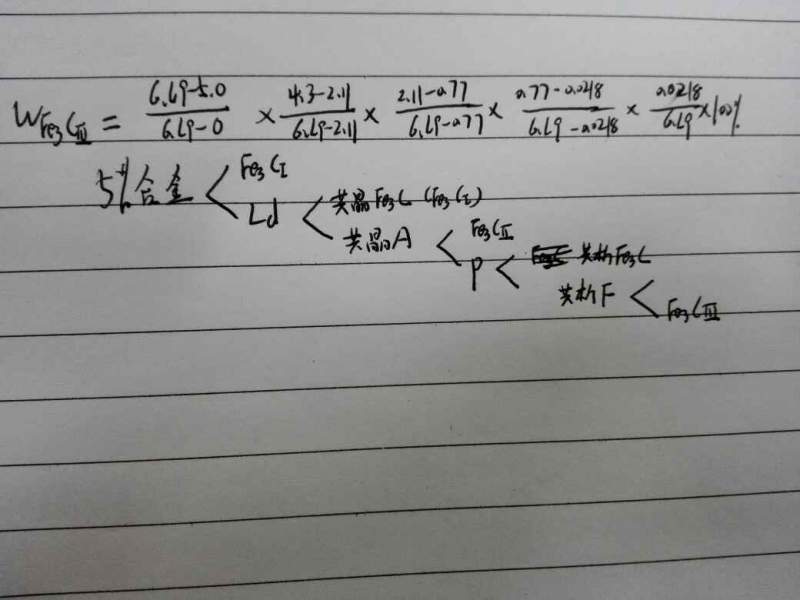 W_{Fe₃CⅢ} = \frac{6.69-5.0}{6.69-0} × \frac{4.3-2.11}{6.69-2.11} × \frac{2.11-0.77}{6.69-0.77} × \frac{0.77-0.0218}{6.69-0.0218} × \frac{0.0218}{6.69} × 100%
5%合金 < Fe₃CⅠ
Ld < 共晶Fe₃C (Fe₃CⅠ)
共晶A < Fe₃CⅡ
P < 共析Fe₃C
共析F < Fe₃CⅢ